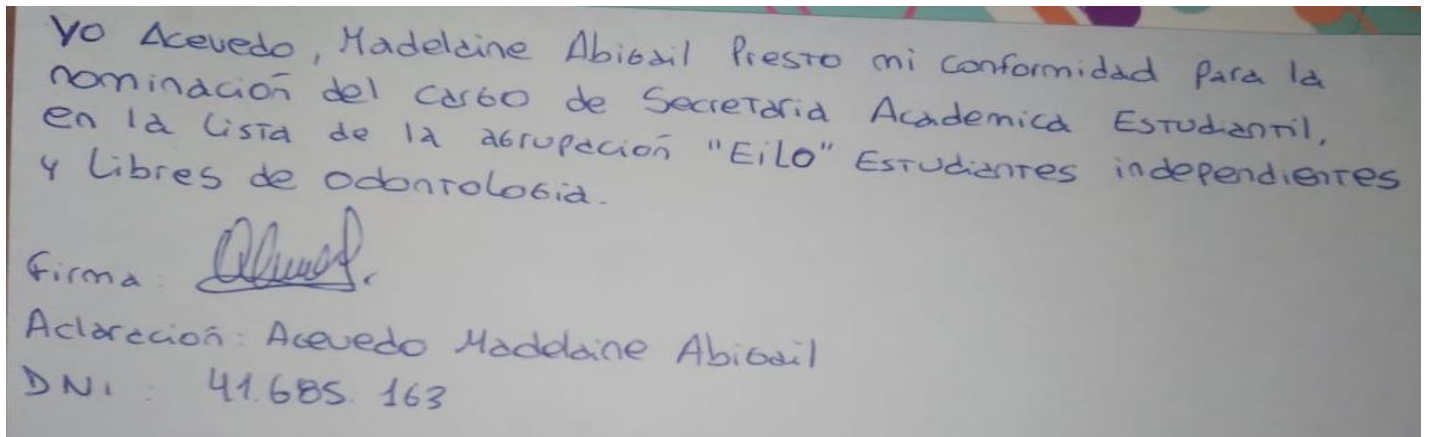 Yo Acevedo, Madelaine Abigail Presto mi conformidad para la
nominación del cargo de Secretaria Academica Estudiantil,
en la lista de la agrupación "EiLO" Estudiantes independientes
y Libres de odontología.
Firma:
Aclaración: Acevedo Madelaine Abigail
DNI: 41.685.163